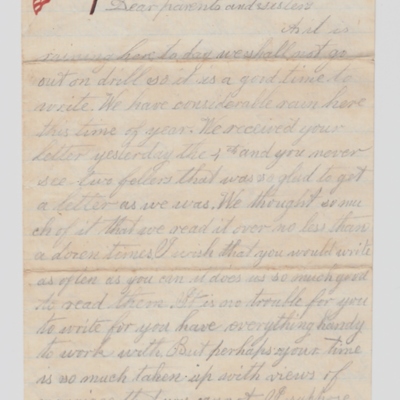 Dear parents and sisters
As it is
raining here to day we shall not go
out on drill so it is a good time to
write. We have considerable rain here
this time of year. We received your
letter yesterday the and you never
see two fellers that was so glad to get
a letter as we was. We thought so mu
ch of it that we read it over no less than
a dozen times. I wish that you would write
as often as you can it does us so much good
to read them. It is no trouble for you
to write for you have everything handy
to work with. But perhaps your time
is so much taken up with views of
that you cannot. I suppose